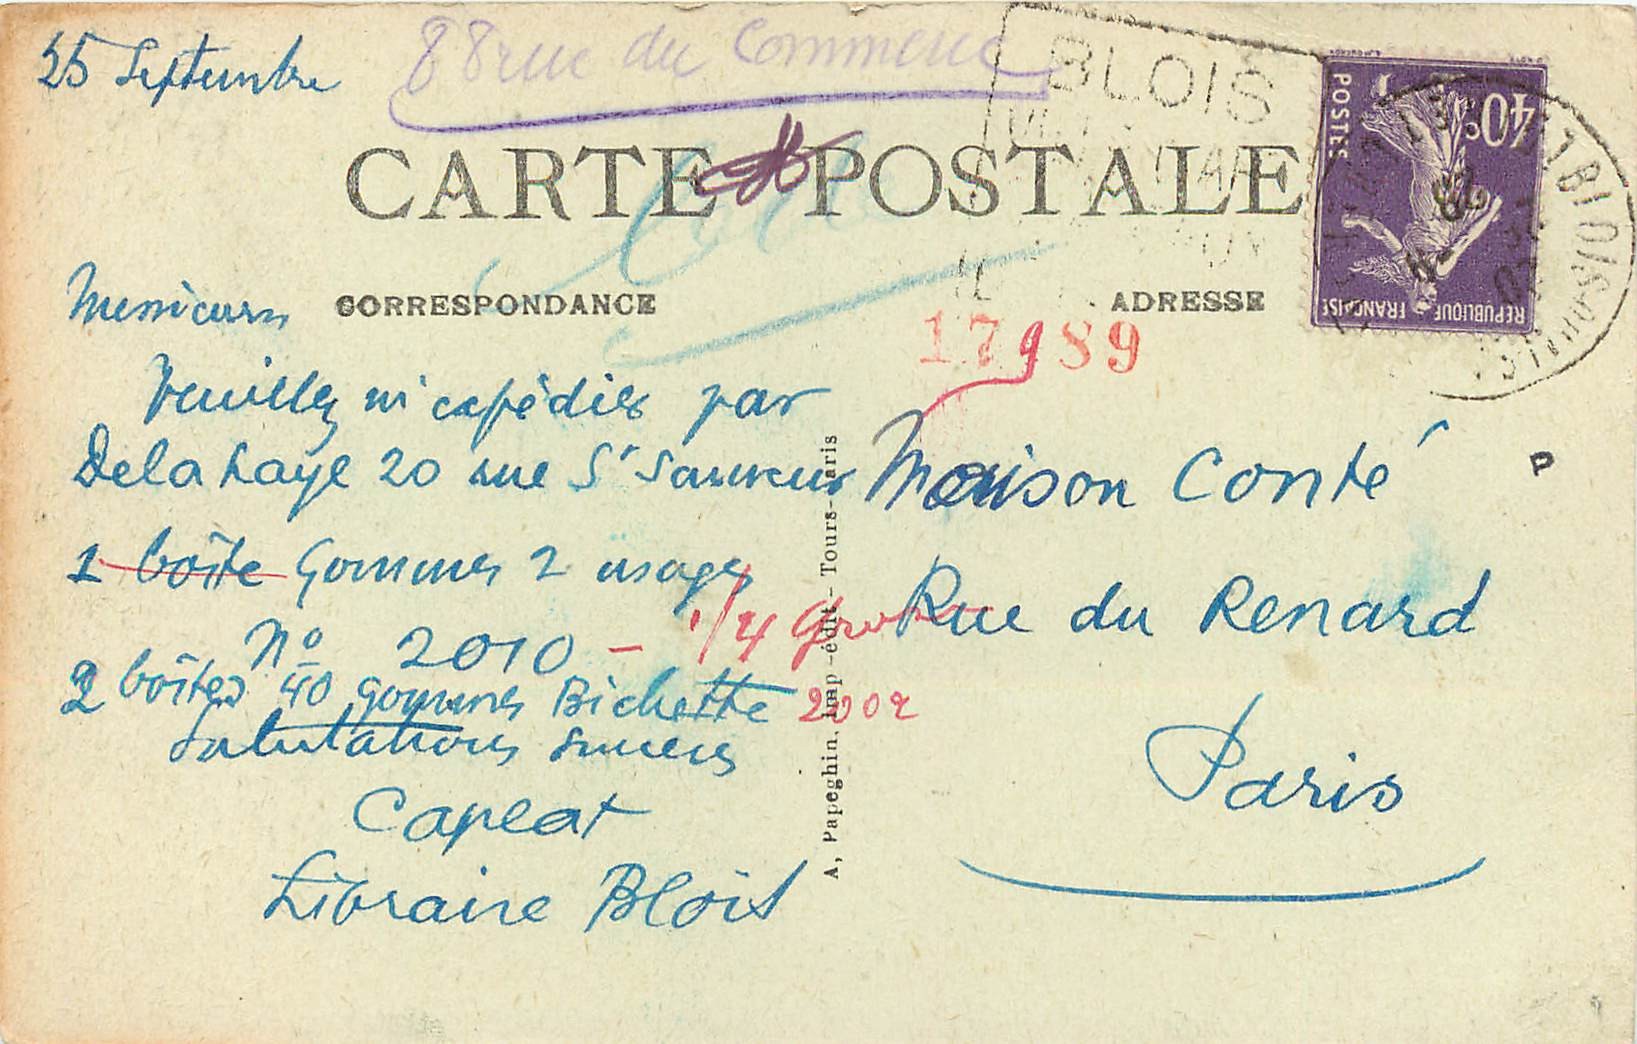 25 Septembre
88 rue du Commerce
BLOIS
CARTE POSTALE
POSTES
40c
REPUBLIQUE FRANÇAISE
BLOIS
CORRESPONDANCE
ADRESSE
17989
Messieurs
Veuillez m'expédier par
Delahaye 20 rue St Sauveur
1 boîte Gommes 2 usages
No 2010 - 1/4 Grosse
2 boîtes 40 gommes Bichette 2002
Salutations sincères
Capeat
Libraire Blois
A. Papeghin, Imp-édit - Tours-Paris
Maison Conté
P
Rue du Renard
Paris